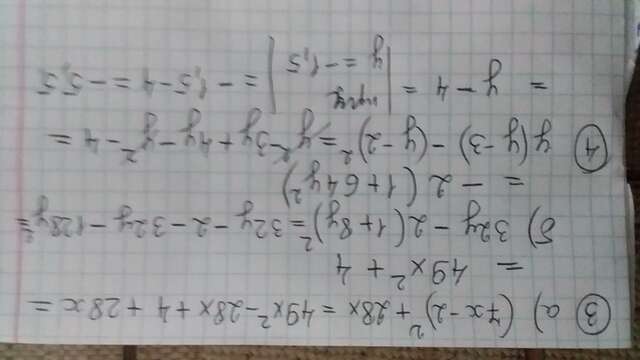 ③ а) (7x-2)² + 28x = 49x² - 28x + 4 + 28x =
= 49x² + 4
б) 32y - 2(1+8y)² = 32y - 2 - 32y - 128y² =
= -2(1+64y²)
④ y(y-3) - (y-2)² = y² - 3y + 4y - y² - 4 =
= y - 4 = | при y = -1,5 | = -1,5 - 4 = -5,5